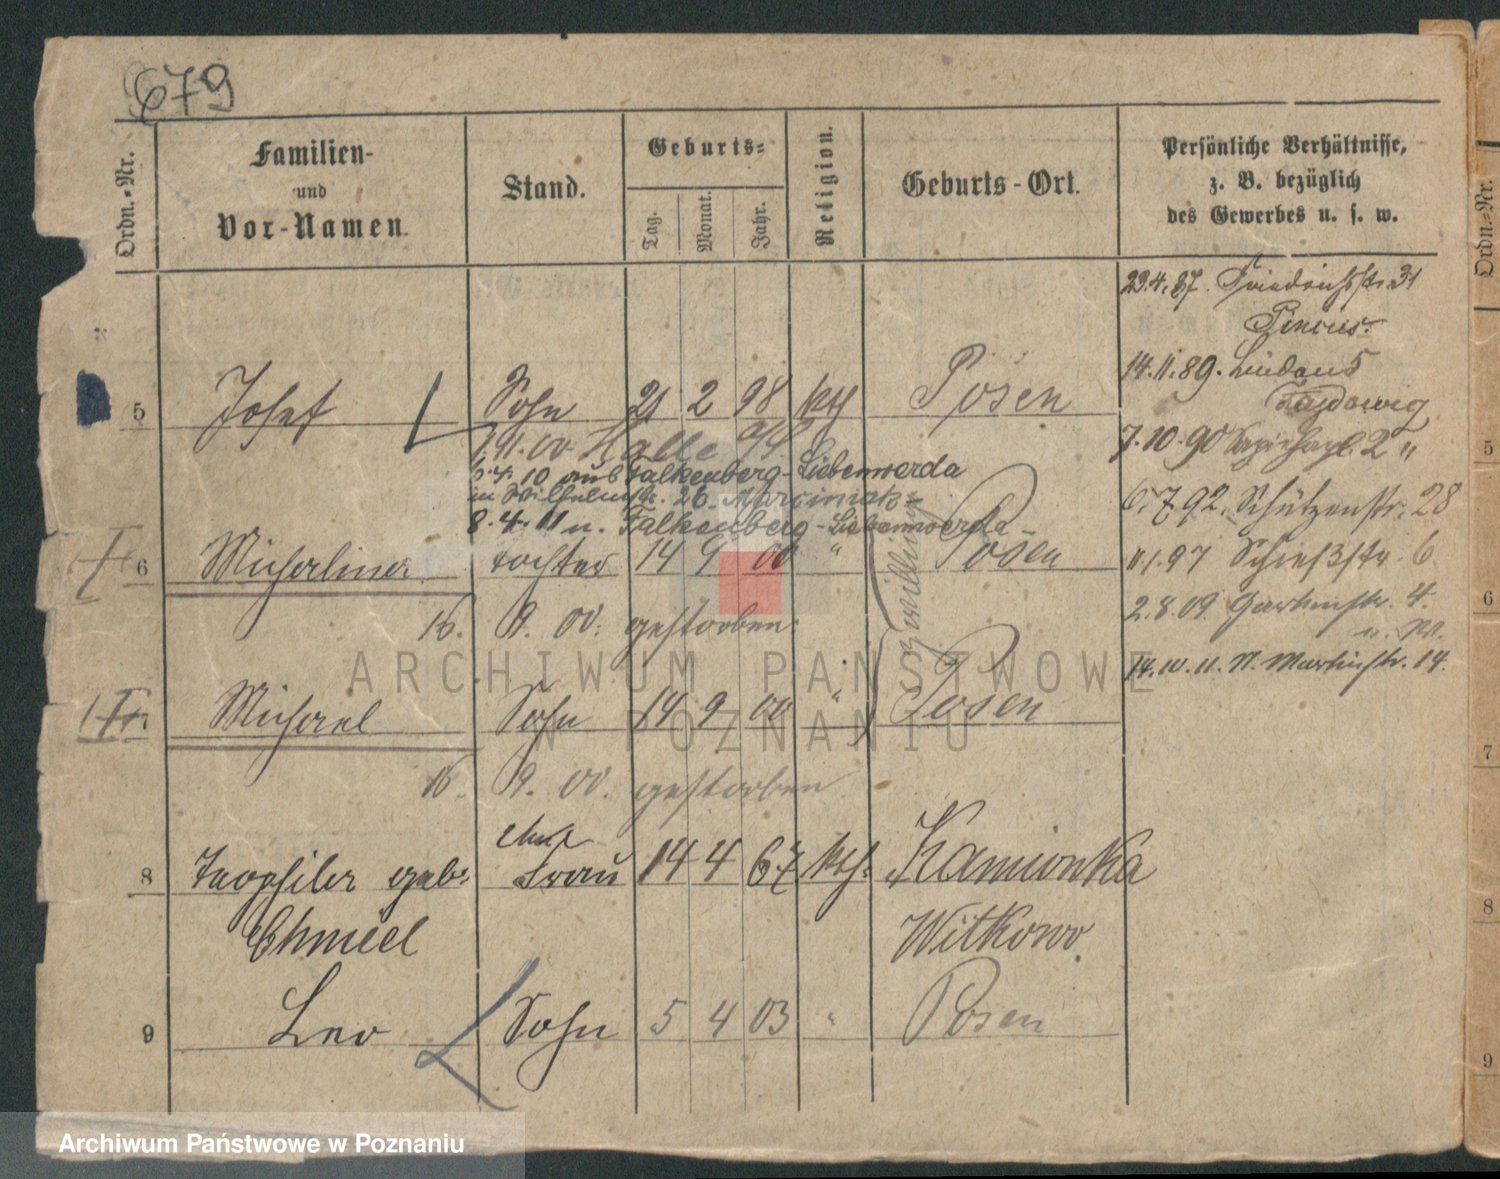 679
Ordn.-Nr.
Familien-
und
Vor-Namen.
Stand.
Geburts-
Tag.
Monat.
Jahr.
Religion.
Geburts-Ort.
Persönliche Verhältnisse,
z. B. bezüglich
des Gewerbes u. s. w.
23.4.87. Friedrichstr. 31
14.11.89.
5 Josef Sohn 21 2 98 kth Posen
7.10.90
1.11.00 Halle a/S
6.4.10 aus Falkenberg-Liebenwerda
in Wilhelmstr. 26 Marciniak
8.4.11 n. Falkenberg-Liebenwerda
6.7.92. Schützenstr. 28
6 Michalina Tochter 14 9 00 " Posen
Zwillinge
11.1.97 Schießstr. 6
2.8.09. Gartenstr. 4.
16. 9. 00. gestorben.
14.10.11. St. Martinstr. 14.
7 Michael Sohn 14 9 00 " Posen
16. 9. 00. gestorben
8 Teophila geb. Ehefrau 14 4 67 kth. Kamionka
Chmiel Witkowo.
9 Leo Sohn 5 4 03 " Posen
ARCHIWUM PAŃSTWOWE
W POZNANIU
Archiwum Państwowe w Poznaniu
Ordn.-Nr.
5
6
7
8
9